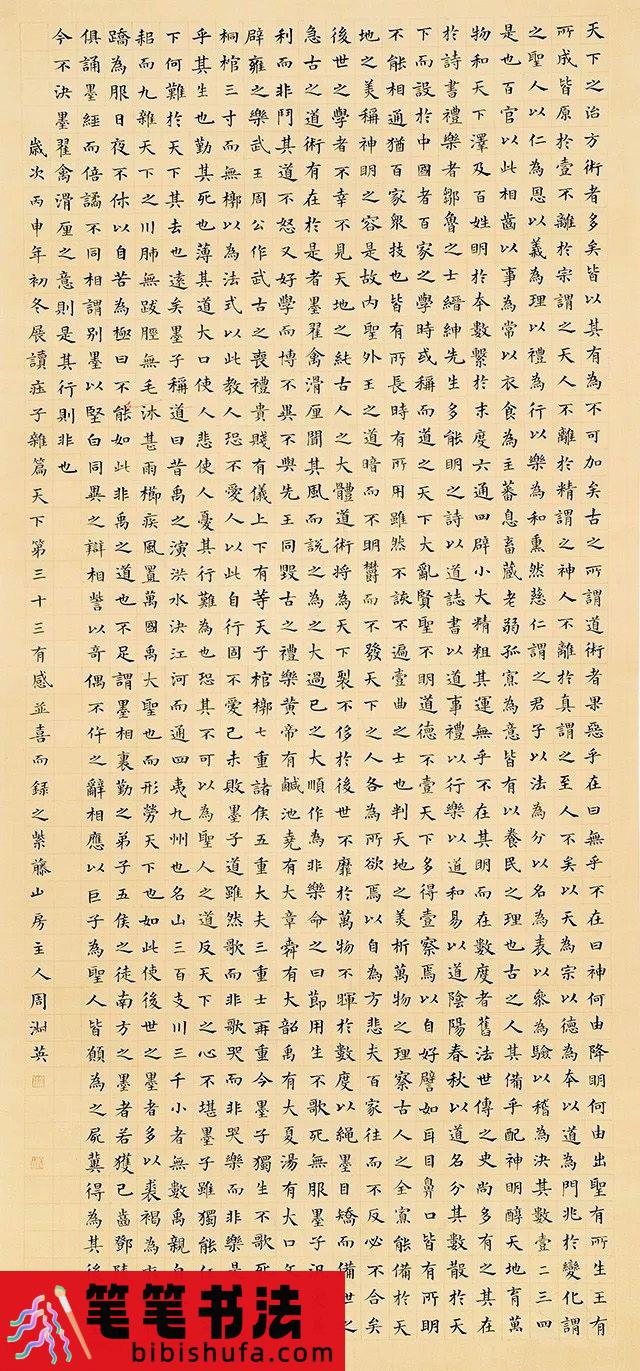 天下之治方術者多矣皆以其有為不可加矣古之所謂道術者果惡乎在曰無乎不在曰神何由降明何由出聖有所生王有
所成皆原於壹不離於宗謂之天人不離於精謂之神人不離於真謂之至人不矣以天為宗以德為本以道為門兆於變化謂
之聖人以仁為恩以義為理以禮為行以樂為和熏然慈仁謂之君子以法為分以名為表以參為驗以稽為決其數壹二三四
是也百官以此相齒以事為常以衣食為主蕃息畜藏老弱孤寡為意皆有以養民之理也古之人其備乎配神明醇天地育萬
物和天下澤及百姓明於本數繫於末度六通四辟小大精粗其運無乎不在其明而在數度者舊法世傳之史尚多有之其在
於詩書禮樂者鄒魯之士縉紳先生多能明之詩以道誌書以道事禮以行樂以道和易以道陰陽春秋以道名分其數散於天
下而設於中國者百家之學時或稱而道之天下大亂賢聖不明道德不壹天下多得壹察焉以自好譬如耳目鼻口皆有所明
不能相通猶百家衆技也皆有所長時有所用雖然不該不遍壹曲之士也判天地之美析萬物之理察古人之全寡能備於天
地之美稱神明之容是故内聖外王之道暗而不明鬱而不發天下之人各為所欲焉以自為方悲夫百家往而不反必不合矣
後世之學者不幸不見天地之純古人之大體道術將為天下裂不侈於後世不靡於萬物不暉於數度以繩墨自矯而備世之
急古之道術有在於是者墨翟禽滑厘聞其風而說之為之大過已之大順作為非樂命之曰節用生不歌死無服墨子
利而非鬥其道不怒又好學而博不異不與先王同毀古之禮樂黃帝有鹹池堯有大章舜有大韶禹有大夏湯有大口
辟雍之樂武王周公作武古之喪禮貴賤有儀上下有等天子棺槨七重諸侯五重大夫三重士再重今墨子獨生不歌死
桐棺三寸而無槨以為法式以此教人恐不愛人以此自行固不愛己未敗墨子道雖然歌而非歌哭而非哭樂而非樂是
乎其生也勤其死也薄其道大口使人悲使人憂其行難為也恐其不可以為聖人之道反天下之心不堪墨子雖獨能
下何難於天下其去也遠矣墨子稱道曰昔禹之演洪水決江河而通四夷九州也名山三百支川三千小者無數禹親
耜而九雜天下之川肺無跋脛無毛沐甚雨櫛疾風置萬國禹大聖也而形勞天下也如此使後世之墨者多以裘褐為
蹻為服日夜不休以自苦為極曰不能如此非禹之道也不足謂墨相裏勤之弟子五侯之徒南方之墨者若獲已齒鄧
俱誦墨經而倍譎不同相謂別墨以堅白同異之辯相訾以奇偶不仵之辭相應以巨子為聖人皆願為之屍冀得為其後
今不決墨翟禽滑厘之意則是其行則非也
歲次丙申年初冬展讀莊子雜篇天下第三十三有感並喜而録之紫藤山房主人周淵英
笔笔书法
bibishufa.com